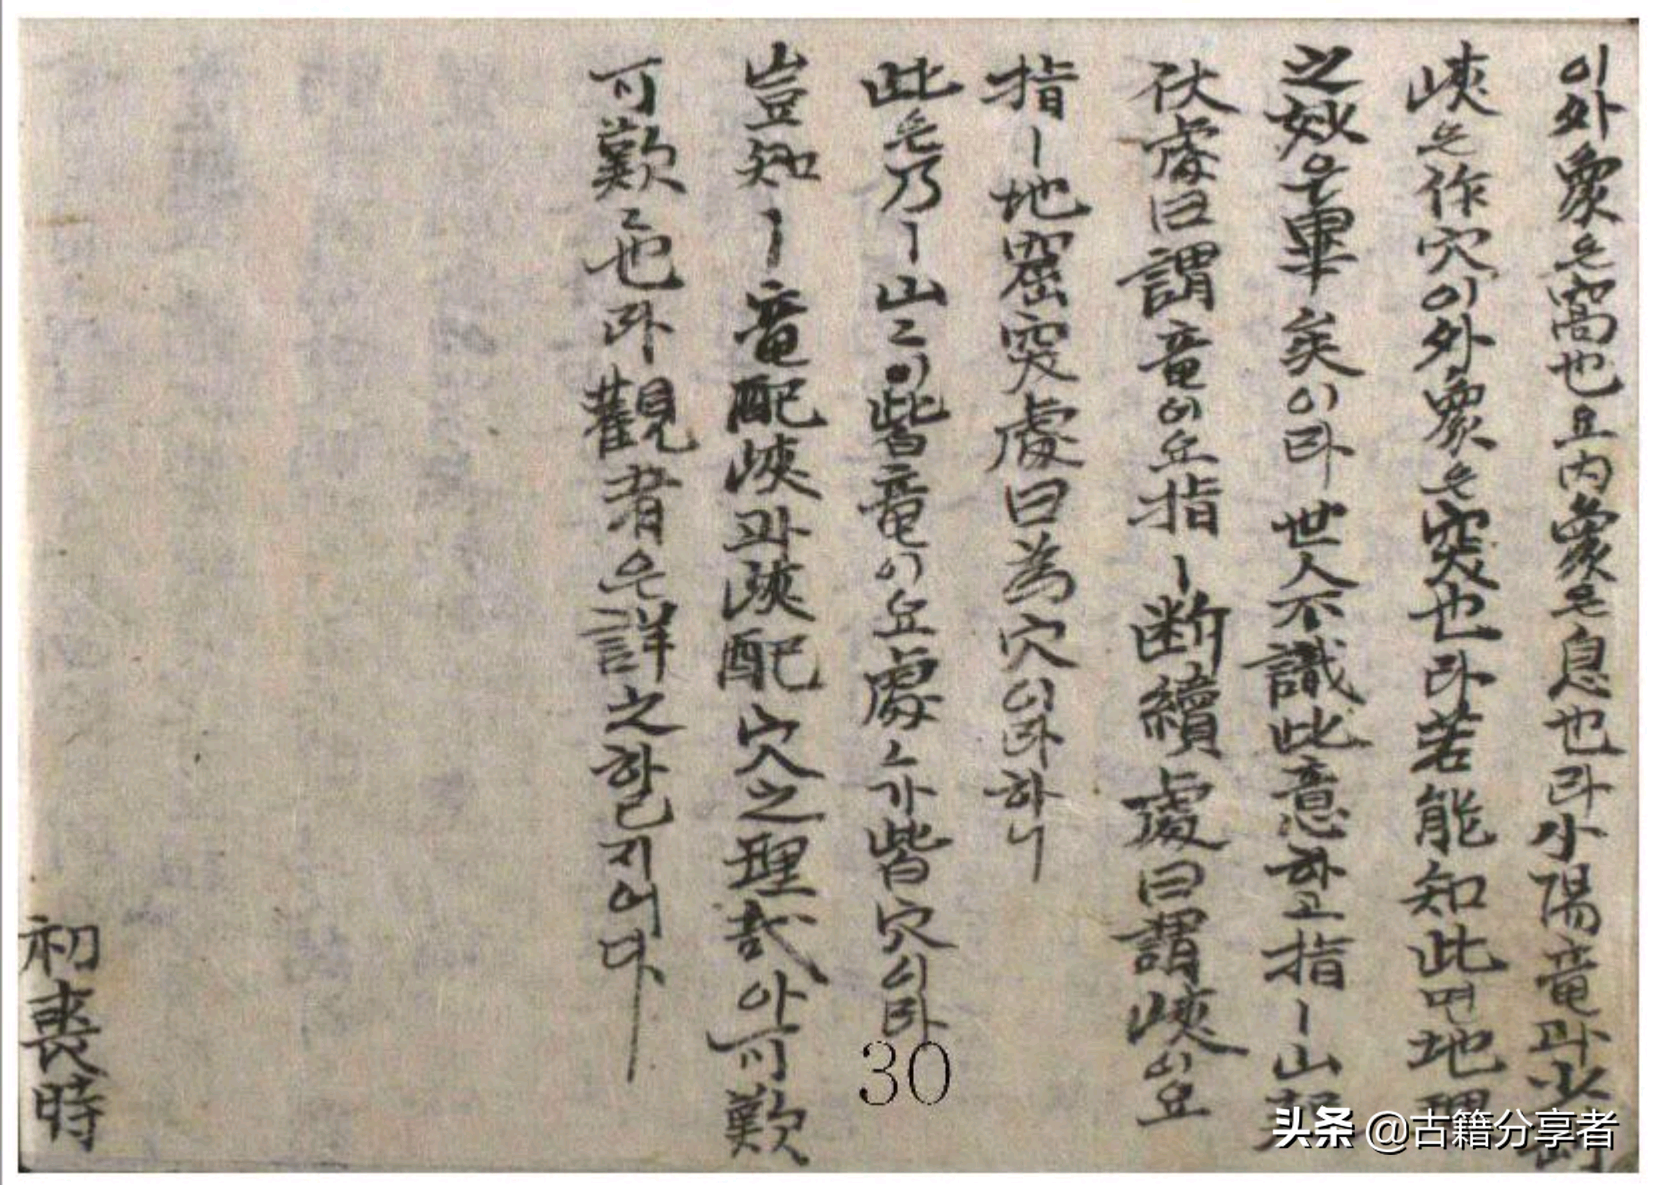 이外象은窩也요內象은息也라小陽竜과少
峽은作穴이外象은突也라若能知此면地理
之妙은畢矣이라世人不識此意하고指一山起
伏處曰謂竜이요指一断續處曰謂峽이요
指一地窟突處曰為穴이라하니
此은乃一山之이皆竜이요處〻가皆穴이라
豈知一竜配峽과峽配穴之理哉아可歎
可歎〻也라觀者은詳之할지어다
初喪時
30
头条 @古籍分享者